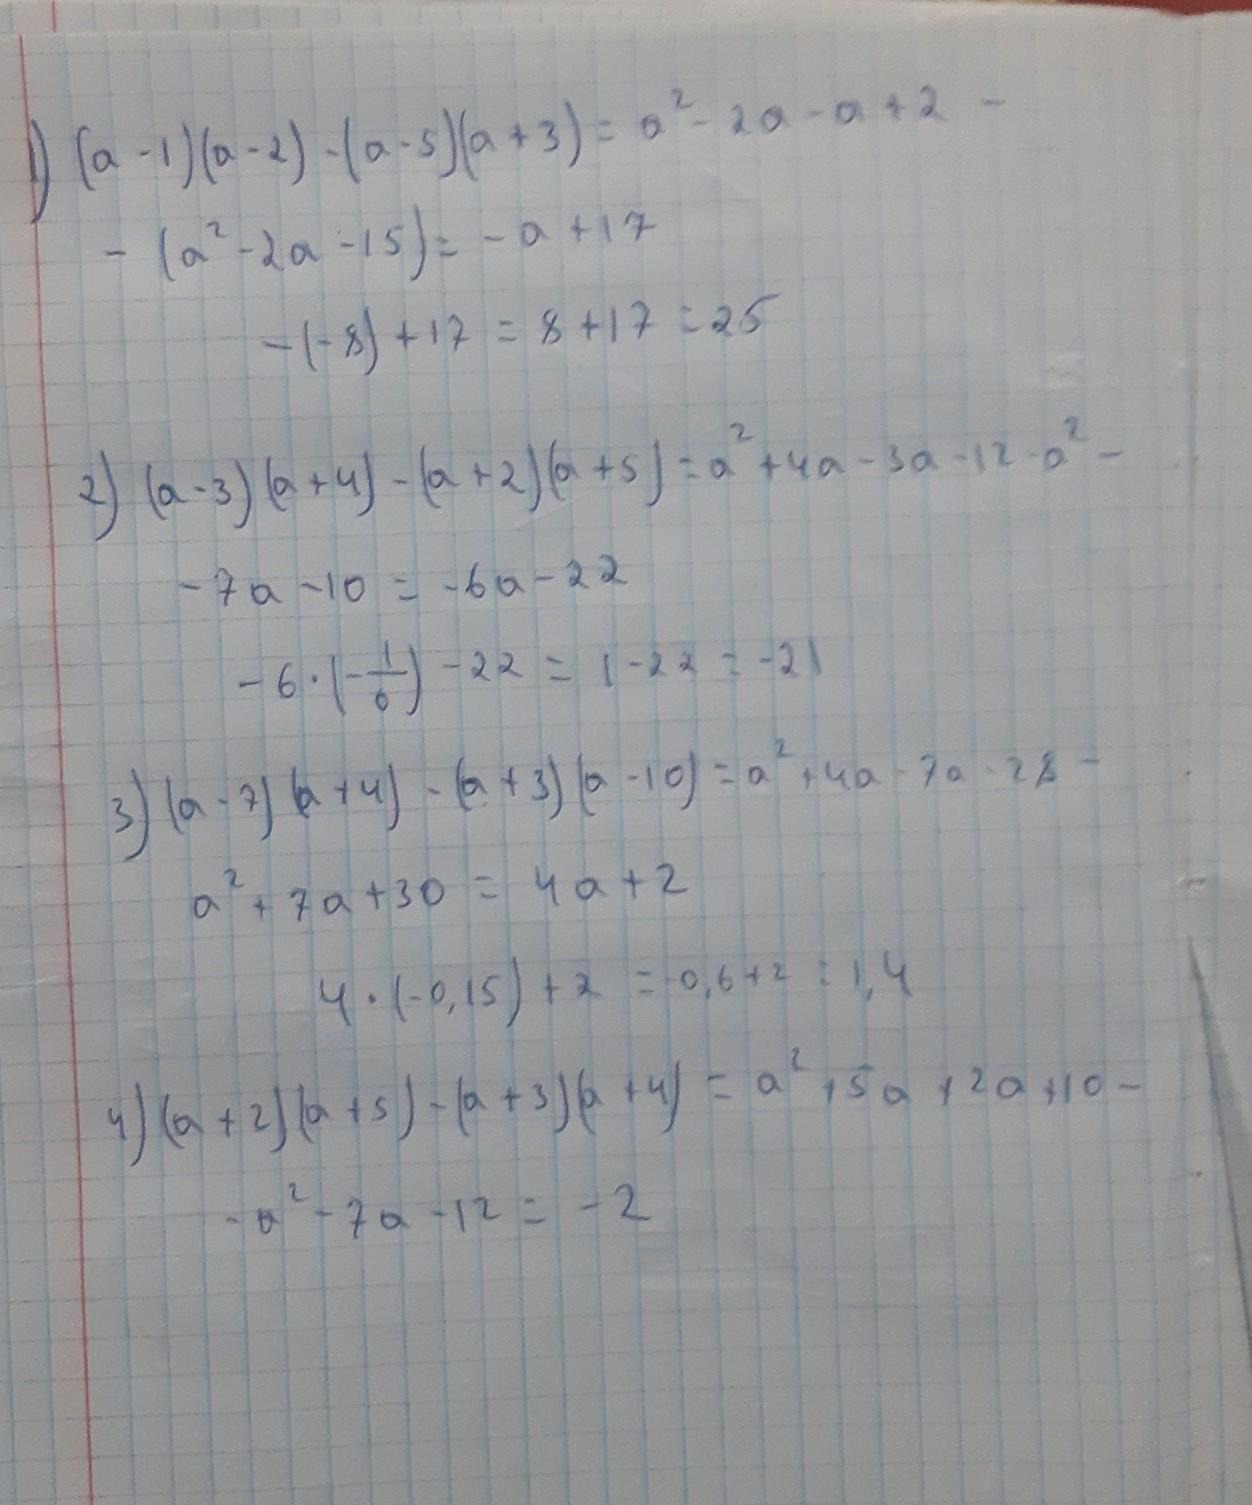 1) (a - 1)(a - 2) - (a - 5)(a + 3) = a² - 2a - a + 2 -
- (a² - 2a - 15) = - a + 17
- (-8) + 17 = 8 + 17 = 25
2) (a - 3)(a + 4) - (a + 2)(a + 5) = a² + 4a - 3a - 12 - a² -
- 7a - 10 = -6a - 22
- 6 · (- 1/6) - 22 = 1 - 22 = -21
3) (a - 7)(a + 4) - (a + 3)(a - 10) = a² + 4a - 7a - 28 -
a² + 7a + 30 = 4a + 2
4 · (-0,15) + 2 = -0,6 + 2 = 1,4
4) (a + 2)(a + 5) - (a + 3)(a + 4) = a² + 5a + 2a + 10 -
- a² - 7a - 12 = - 2